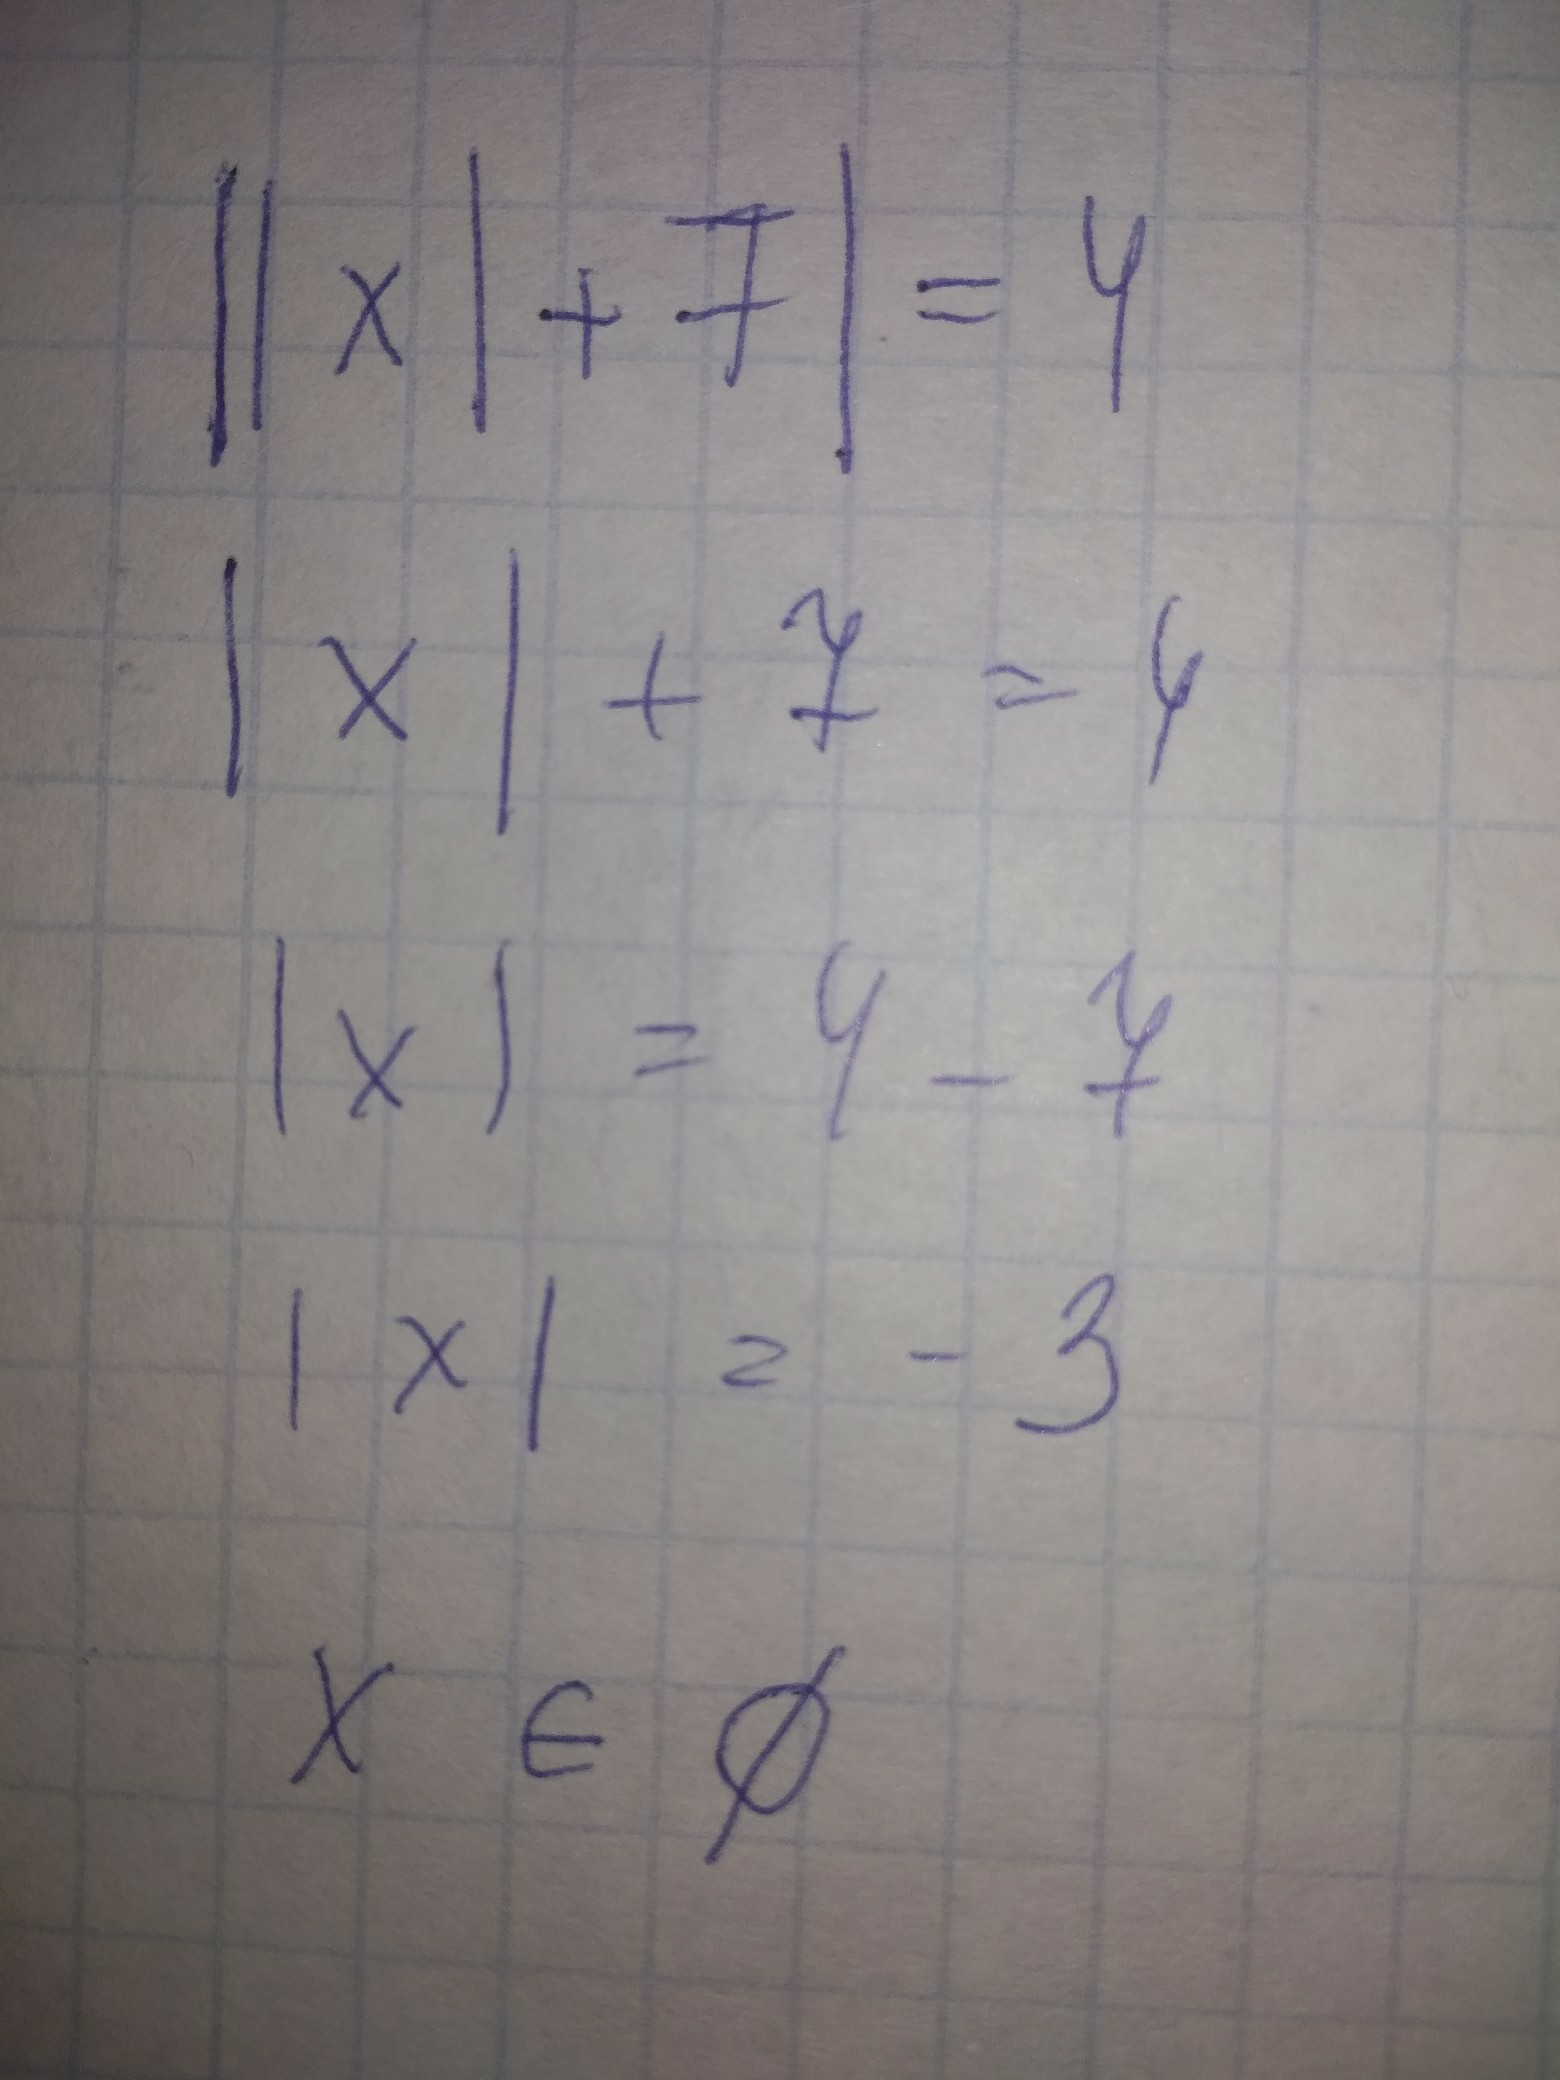 ||x|+7|=4
|x|+7=4
|x|=4-7
|x|=-3
x∈∅